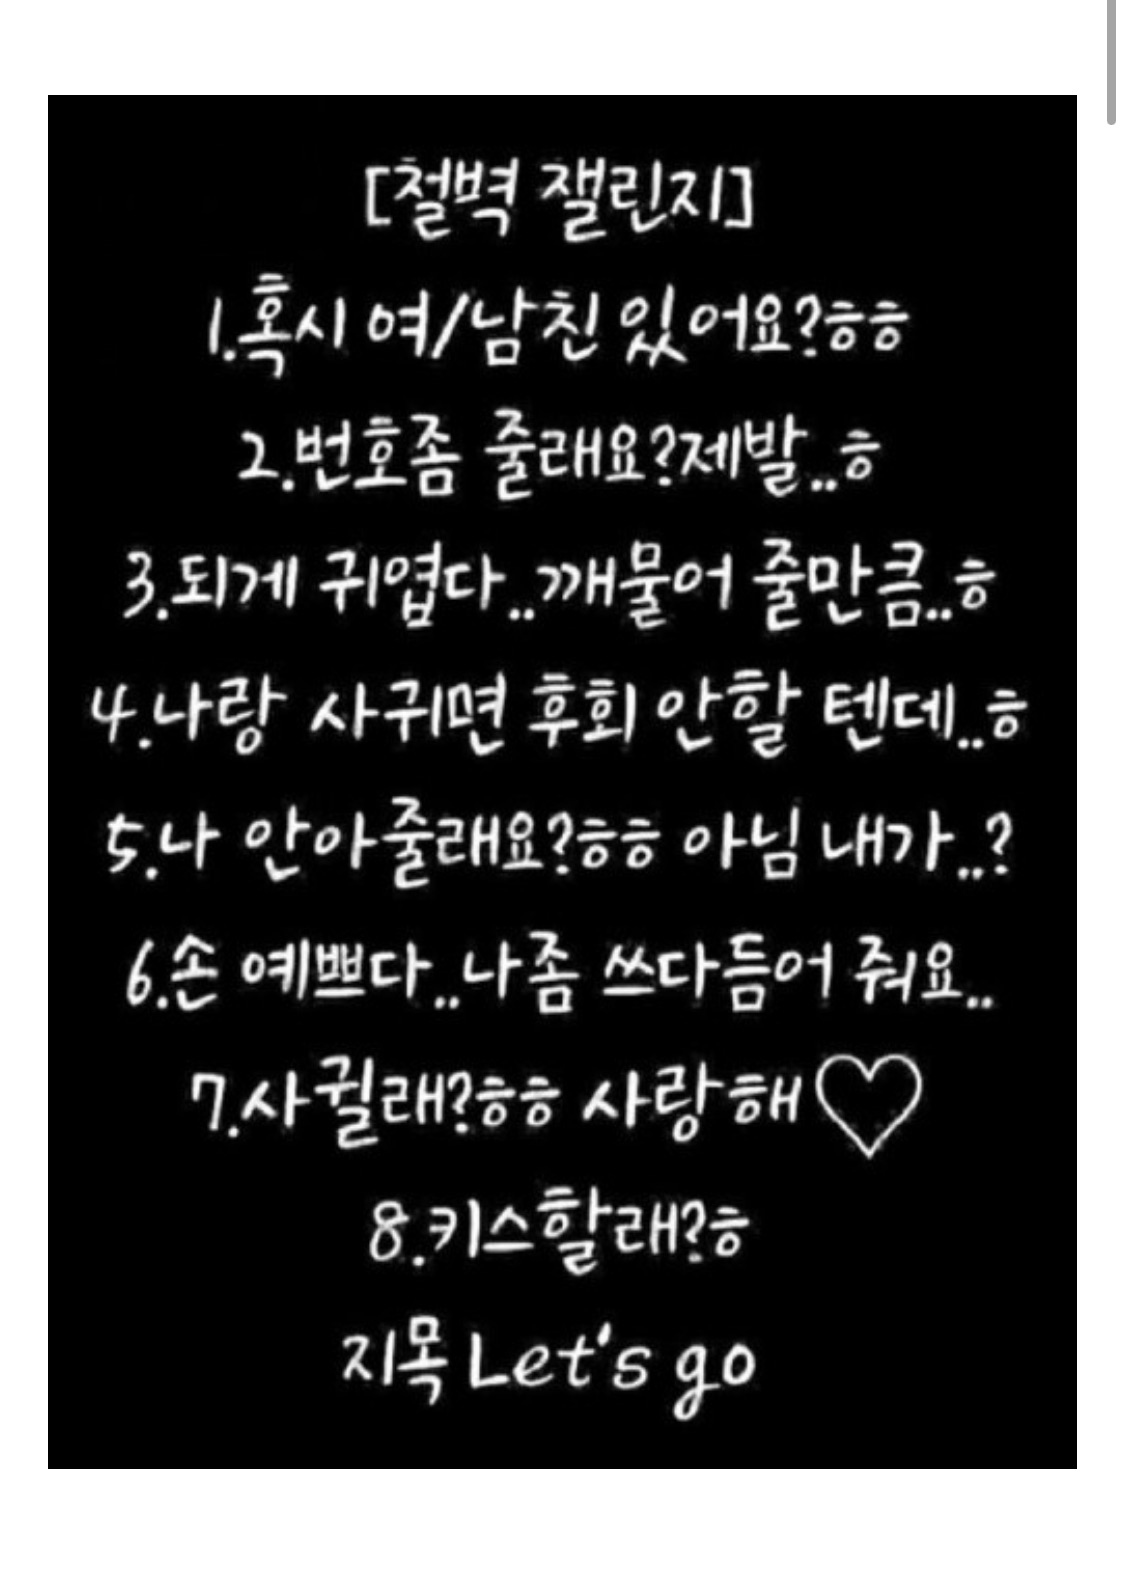 [철벽 챌린지]
1.혹시 여/남친 있어요?ㅎㅎ
2.번호좀 줄래요?제발..ㅎ
3.되게 귀엽다..깨물어 줄만큼..ㅎ
4.나랑 사귀면 후회 안할 텐데..ㅎ
5.나 안아줄래요?ㅎㅎ 아님 내가..?
6.손 예쁘다..나좀 쓰다듬어 줘요..
7.사귈래?ㅎㅎ 사랑해♡
8.키스할래?ㅎ
지목 Let's go